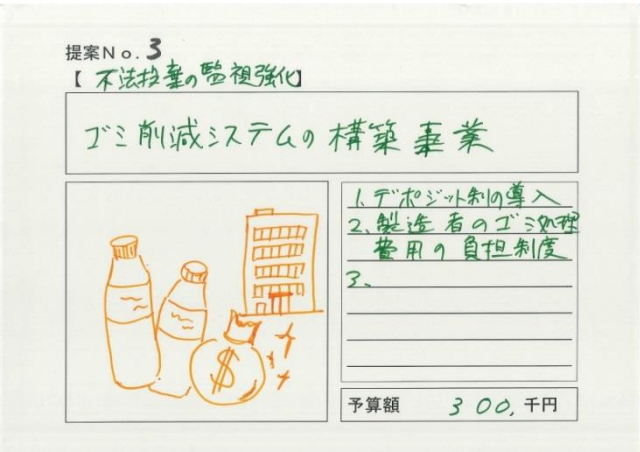 提案No. 3
【不法投棄の監視強化】
ゴミ削減システムの構築事業
1. デポジット制の導入
2. 製造者のゴミ処理
費用の負担制度
3.
$
予算額 300,千円